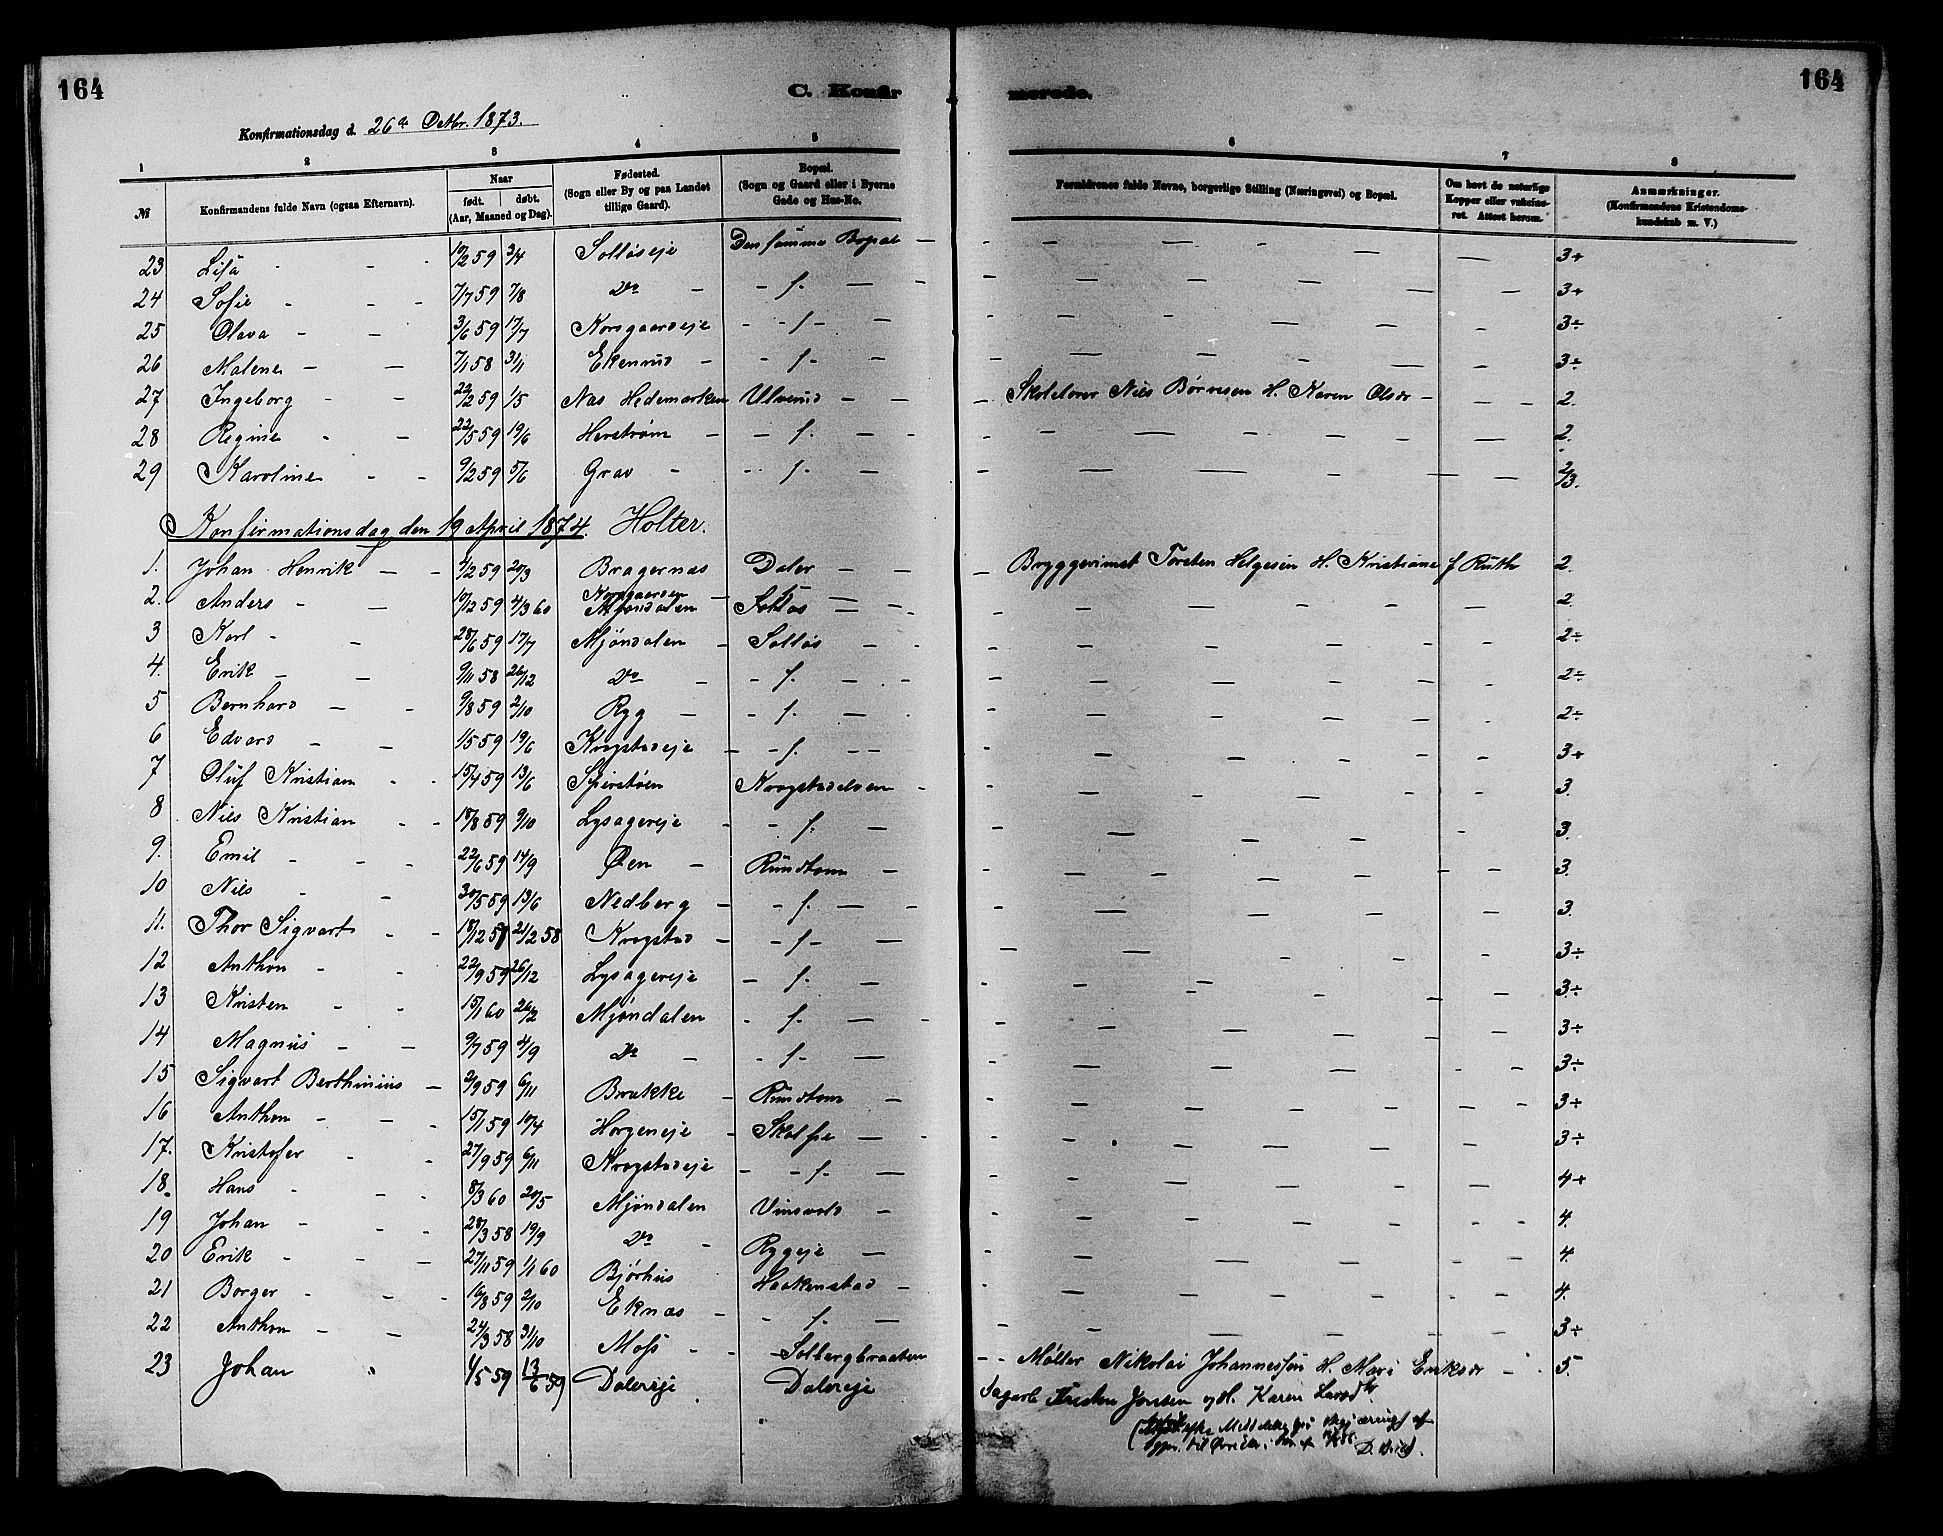 164
C. Konfir
merede.
164
Konfirmationsdag d. 26de Octbr. 1873.
1 2 3 4 5 6 7 8
№ Konfirmandens fulde Navn (ogsaa Efternavn). Naar født. døbt. (Aar, Maaned og Dag). Fødested. (Sogn eller By og paa Landet tillige Gaard). Bopæl. (Sogn og Gaard eller i Byerne Gade og Hus-No. Forældrenes fulde Navne, borgerlige Stilling (Næringsvei) og Bopæl. Om havt de naturlige Kopper eller vaccineret. Attest herom. Anmærkninger. (Konfirmandens Kristendomskundskab m. V.)
23 Lisa - - 10/2 59 3/4 Solløseje Den samme Bopæl - 3+
24 Sofie - - - 7/7 59 7/8 Do - - f. - - 3+
25 Olava - - 3/6 59 17/7 Korsgaardseje - - f - - 3÷
26 Malene - - 7/1 58 31/1 Ekenud - - f. - 3÷
27 Ingeborg - - 22/2 59 1/5 Nas Hedemarken Ulverud - - Skolelærer Nils Børresen H. Karen Olsdr - 2.
28 Regine - - 22/5 59 19/6 Herstrøm - - f. - - 2.
29 Karoline - - 9/2 59 5/6 Grav - - f. - 2/3.
Konfirmationsdag den 19 April 1874. Holter.
1. Johan Henrik - - 9/2 59 20/3 Bragernæs Daler - - Bryggerimst Torsten Helgesen H. Kristiane f Ruth 2.
2. Anders - - 10/12 59 4/3 60 Korsgaarden Mjøndalen Solløs - - 2.
3 Karl - - 28/6 59 17/7 Mjøndalen - Solløs - 2÷
4. Erik - - 9/11 58 26/12 Do - - f. - - 2÷
5 Bernhard - - 9/8 59 2/10 Ryg - - f. - - 2÷
6 Edvard - - 1/5 59 19/6 Krogstadeje - - f. - - 3+
7 Oluf Kristian - - 15/4 59 13/6 Spierstøen Krogstadelven - 3.
8 Nils Kristian - - 18/8 59 9/10 Lysagereje - - f. - 3.
9. Emil - - - 22/6 59 14/9 Øen - Rundtom - 3.
10 Nils - - 30/5 59 13/6 Nedberg - - f. - - 3.
11. Thor Sigvart - - 18/12 57 21/2 58 Krogstad - - f - - 3÷
12 Anthon - - 22/9 59 26/12 Lysagereje - f. - 3÷
13 Kristen - - 15/1 60 26/2 Mjøndalen - f. - - 3÷
14 Magnus - - 9/7 59 4/9 Do - - f - 3÷
15 Sigvart Berthinius - 2/9 59 6/11 Brække - Rundtom - 3÷
16 Anthon - - - 15/1 59 10/4 Horgeneje - Skalfie - - 3÷
17. Kristofer - - 27/9 59 6/11 Krogstadeje - - f. - 4+
18. Hans - - - 8/3 60 20/5 Mjøndalen Vinsvold - 4.
19 Johan - - - 28/3 58 19/9 Do - Rygeje - 4.
20 Erik - - - 27/11 59 1/1 60 Bjørhus Haakenstad - 4.
21 Borger - - - 16/8 59 2/10 Eknæs - - f. - 3÷
22 Anthon - - 24/3 58 31/10 Moss - - Solbergbraaten - - Møller Nikolai Johannessøn H. Mari Eriksdr - 5.
23 Johan " 4/5 59 13/6 59 Dalereje Dalereje Sagarb Kristen Jonsen og H. Karen Larsdtr